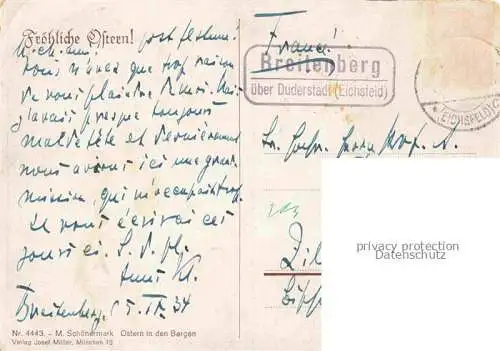 Fröhliche Ostern!
post festum!
Mich. ami!
vous n'avez que trop raison
de vous plaindre de moi. Mais
j'avais presque toujours
mal de tête et dernièrement
nous avions ici une grande
mission, qui m'occupait trop.
Je vous écrirai ces
jours ci. S. V. pl.
Breitenberg, 5. IV. 34
Nr. 4443. - M. Schönermark Ostern in den Bergen
Verlag Josef Müller, München 13
Franci
Breitenberg
über Duderstadt (Eichsfeld)
(EICHSFELD)
Prof. A.
privacy protection
Datenschutz